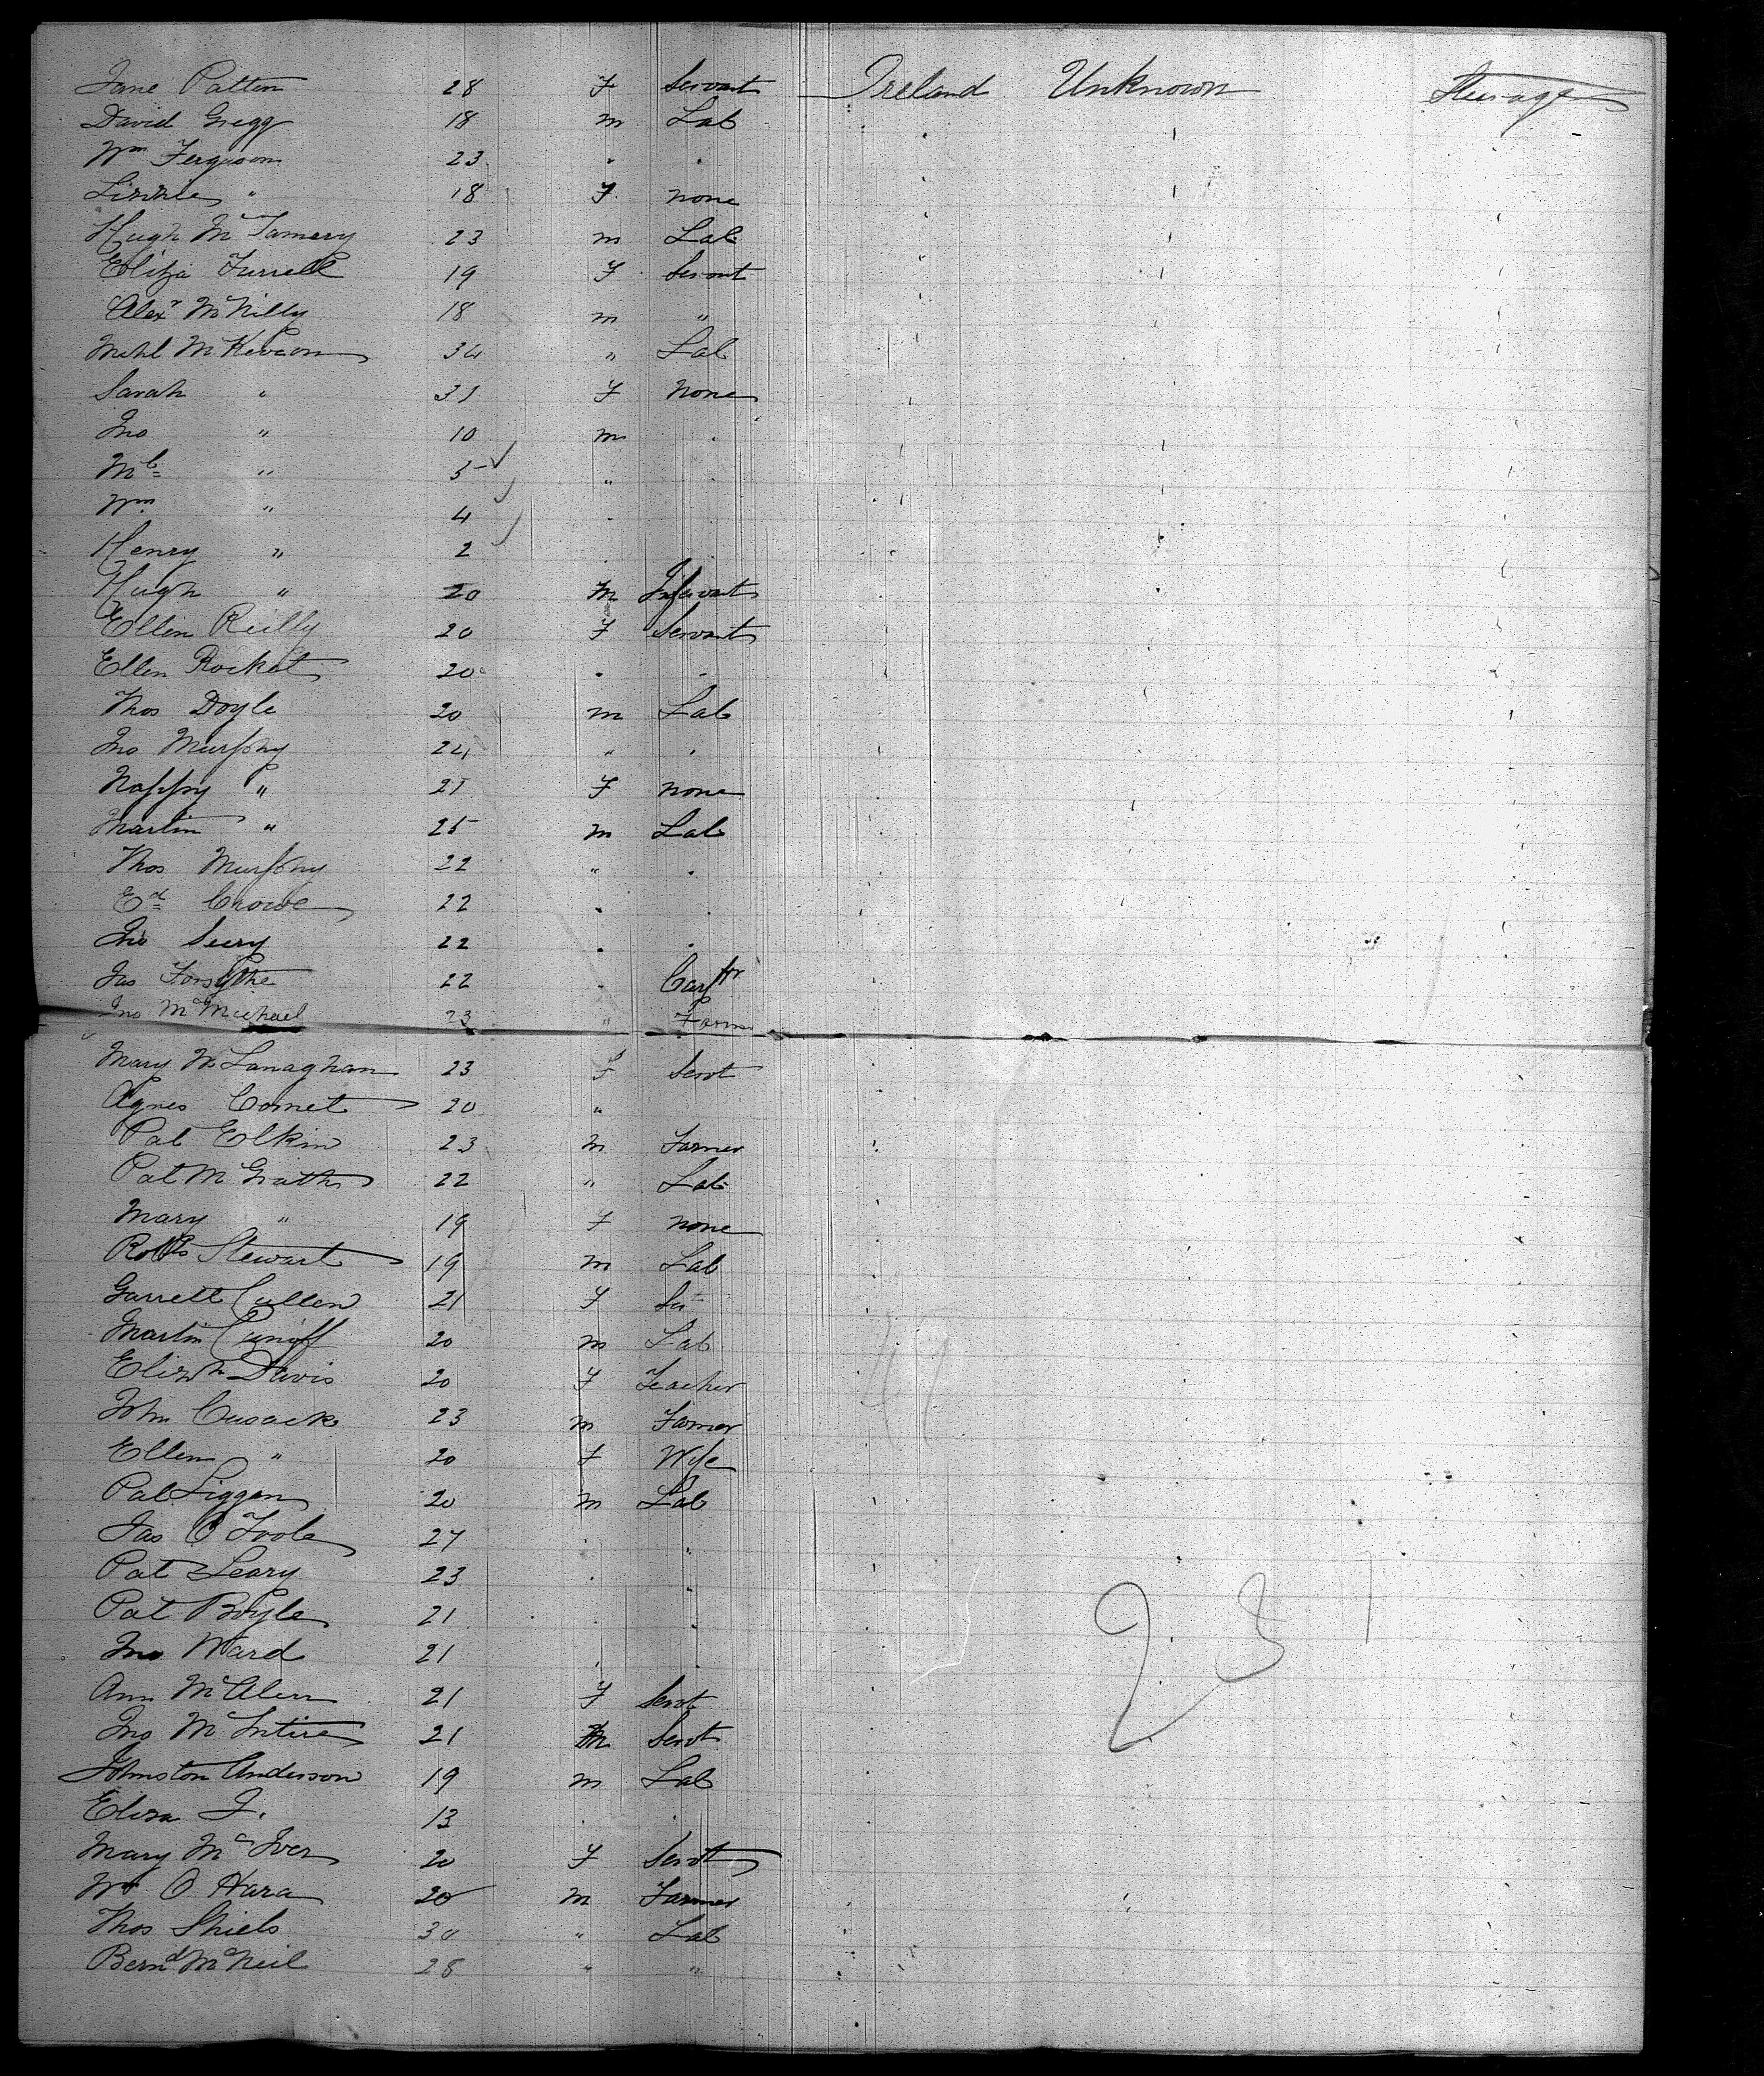 Jane Patten 28 F Servant Ireland Unknown Steerage
David Gregg 18 m Lab
Wm Ferguson 23 " "
Lizzie " 18 F none
Hugh Mc Tamery 23 m Lab
Eliza Turrell 19 F Servant
Alexr McNilly 18 m "
Michl McKevaon 34 " Lab
Sarah " 31 F None
Jno " 10 m "
Ml " 5 "
Wm " 4 "
Henry " 2
Hugh " 20 M
Ellen Reilly 20 F Servant
Ellen Rocket 20 " "
Thos Doyle 20 m Lab
Jno Murphy 24 " "
Nappy " 21 F none
Martin " 25 m Lab
Thos Murphy 22 " "
Ed Crowe 22 "
Jno Seery 22 " "
Jas Forsythe 22 " Carptr
Jno McMichael 23 " Farmer
Mary McLanaghan 23 F Servt
Agnes Comet 20 "
Pat Elkin 23 m Farmer
Pat McGrath 22 " Lab
Mary " 19 F none
Robt Stewart 19 m Lab
Garrett Cullen 21 F
Martin Cuniff 20 m Lab
Elizth Davis 20 F Teacher
John Cusack 23 m Farmer
Ellen " 20 F Wife
Pat Liggan 20 m Lab
Jas O Toole 27 " "
Pat Leary 23 " "
Pat Boyle 21 " "
Jno Ward 21 " "
Ann McAleer 21 F Servt
Jno McIntire 21 m Servt
Johnston Anderson 19 m Lab
Eliza J. 13 " "
Mary McIver 20 F Servt
Wm O Hara 20 m Farmer
Thos Shiels 30 " Lab
Bernd McNeil 28 " "
231